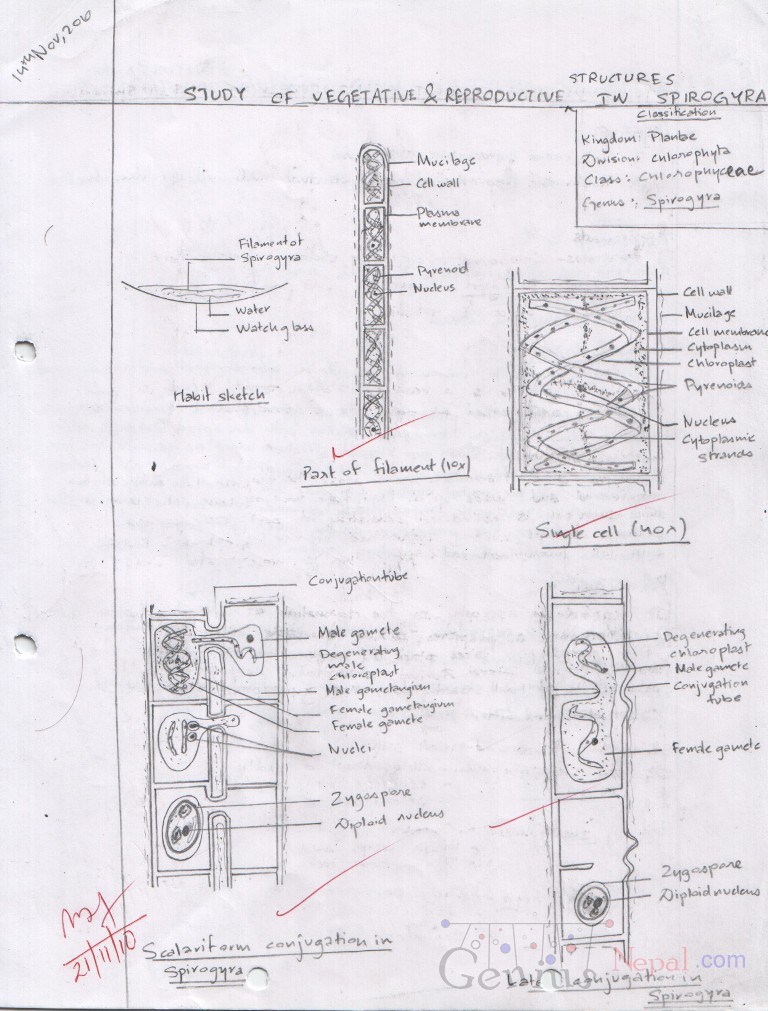 14th Nov, 2010
STUDY OF VEGETATIVE & REPRODUCTIVE STRUCTURES IN SPIROGYRA
Classification
Kingdom: Plantae
Division: Chlorophyta
Class: Chlorophyceae
Genus: Spirogyra
Mucilage
Cell wall
Plasma
membrane
Pyrenoid
Nucleus
Part of filament (10x)
Filament of
Spirogyra
Water
Watch glass
Habit sketch
Cell wall
Mucilage
Cell membrane
Cytoplasm
Chloroplast
Pyrenoids
Nucleus
Cytoplasmic
strands
Single cell (40x)
Conjugation tube
Male gamete
Degenerating
male
chloroplast
Male gametangium
Female gametangium
Female gamete
Nuclei
Zygospore
Diploid nucleus
Scalariform conjugation in
Spirogyra
Degenerating
chloroplast
Male gamete
Conjugation
tube
Female gamete
Zygospore
Diploid nucleus
conjugation in
Spirogyra
21/11/10
Genius Nepal.com